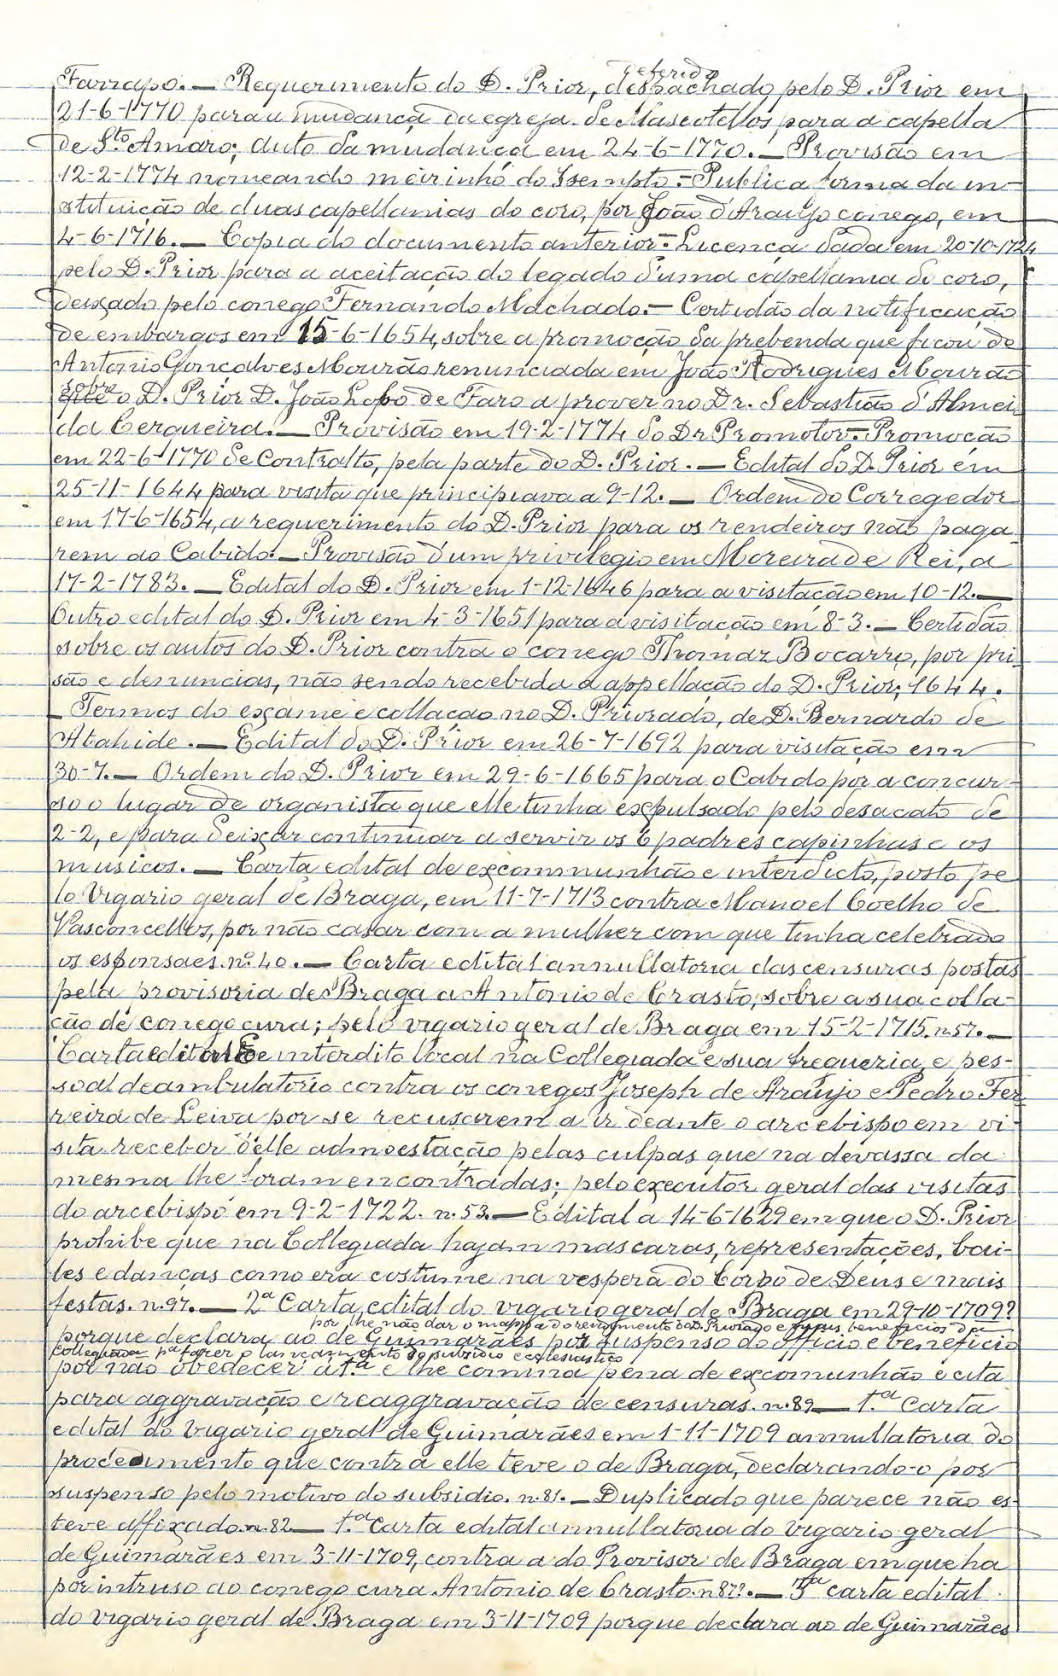 Farrapo. — Requerimento do D. Prior, deferido despachado pelo D. Prior em
21-6-1770 para a mudança da egreja de Mascotellos para a capella
de Sto Amaro; auto da mudança em 24-6-1770. — Provisão em
12-2-1774 nomeando meirinho do Isempto. — Publica forma da in-
stituição de duas capellanias do coro, por João d'Araujo conego, em
4-6-1716. — Copia do documento anterior. — Licença dada em 20-10-1724
pelo D. Prior para a aceitação do legado d'uma capellania do coro,
deixado pelo conego Fernando Machado. — Certidão da notificação
de embargos em 15-6-1654, sobre a promoção da prebenda que ficou de
Antonio Gonçalves Mourão renunciada em João Rodrigues Mourão
sobre o D. Prior D. João Lobo de Faro a prover no Dr. Sebastião d'Almei
da Cerqueira. — Provisão em 19-2-1774 do Dr Promotor. — Promoção
em 22-6-1770 de Contralto, pela parte do D. Prior. — Edital do D. Prior em
25-11-1644 para visita que principiava a 9-12. — Ordem do Corregedor
em 17-6-1654, a requerimento do D. Prior para os rendeiros não paga
rem ao Cabido. — Provisão d'um privilegio em Moreira de Rei, a
17-2-1783. — Edital do D. Prior em 1-12-1646 para a visitação em 10-12. —
Outro edital do D. Prior em 4-3-1651 para a visitação em 8-3. — Certidão
sobre os autos do D. Prior contra o conego Thomaz Bocarro, por pri
são e denuncias, não sendo recebida a appellação do D. Prior; 1644.
— Termos do exame e collação no D. Priorado, de D. Bernardo de
Atahide. — Edital do D. Prior em 26-7-1692 para visitação em
30-7. — Ordem do D. Prior em 29-6-1665 para o Cabido por a concur-
so o lugar de organista que elle tinha expulsado pelo desacato de
2-2, e para deixar continuar a servir os 6 padres capinhas e os
musicos. — Carta edital de excommunhão e interdicto, posto pe
lo Vigario geral de Braga, em 11-7-1713 contra Manoel Coelho de
Vasconcellos, por não casar com a mulher com que tinha celebrado
os esponsaes. nº 40. — Carta edital annullatoria das censuras postas
pela provisoria de Braga a Antonio de Crasto, sobre a sua colla-
ção de conego cura; pelo vigario geral de Braga em 15-2-1715. n. 57. —
Carta edital de interdito local na Collegiada e sua freguezia, e pes-
soal deambulatorio contra os conegos Joseph de Araujo e Pedro Fer
reira de Leiva por se recusarem a ir deante o arcebispo em vi-
sita receber d'elle admoestação pelas culpas que na devassa da
mesma lhe foram encontradas; pelo executor geral das visitas
do arcebispo em 9-2-1722. n. 53. — Edital a 14-6-1629 em que o D. Prior
prohibe que na Collegiada hajam mascaras, representações, bai-
les e danças como era costume na vespera do Corpo de Deus e mais
festas. n. 97. — 2ª Carta edital do vigario geral de Braga em 29-10-1709?
por lhe não dar o mappa do rendimento do Priorado e mais beneficios da
porque declara ao de Guimarães por suspenso do officio e beneficio
collegiada pª fazer o lançamento do subsidio ecclesiastico
por não obedecer á 1.ª e lhe comina pena de excomunhão e cita
para aggravação e reaggravação de censuras. n. 89 — 1.ª Carta
edital do vigario geral de Guimarães em 1-11-1709 annullatoria do
procedimento que contra elle teve o de Braga, declarando-o por
suspenso pelo motivo do subsidio. n. 81. — Duplicado que parece não es-
teve affixado. n. 82 — 1.ª Carta edital annullatoria do vigario geral
de Guimarães em 3-11-1709, contra a do Provisor de Braga em que ha
por intruso ao conego cura Antonio de Crasto. n 87?. — 3ª carta edital
do vigario geral de Braga em 3-11-1709 porque declara ao de Guimarães